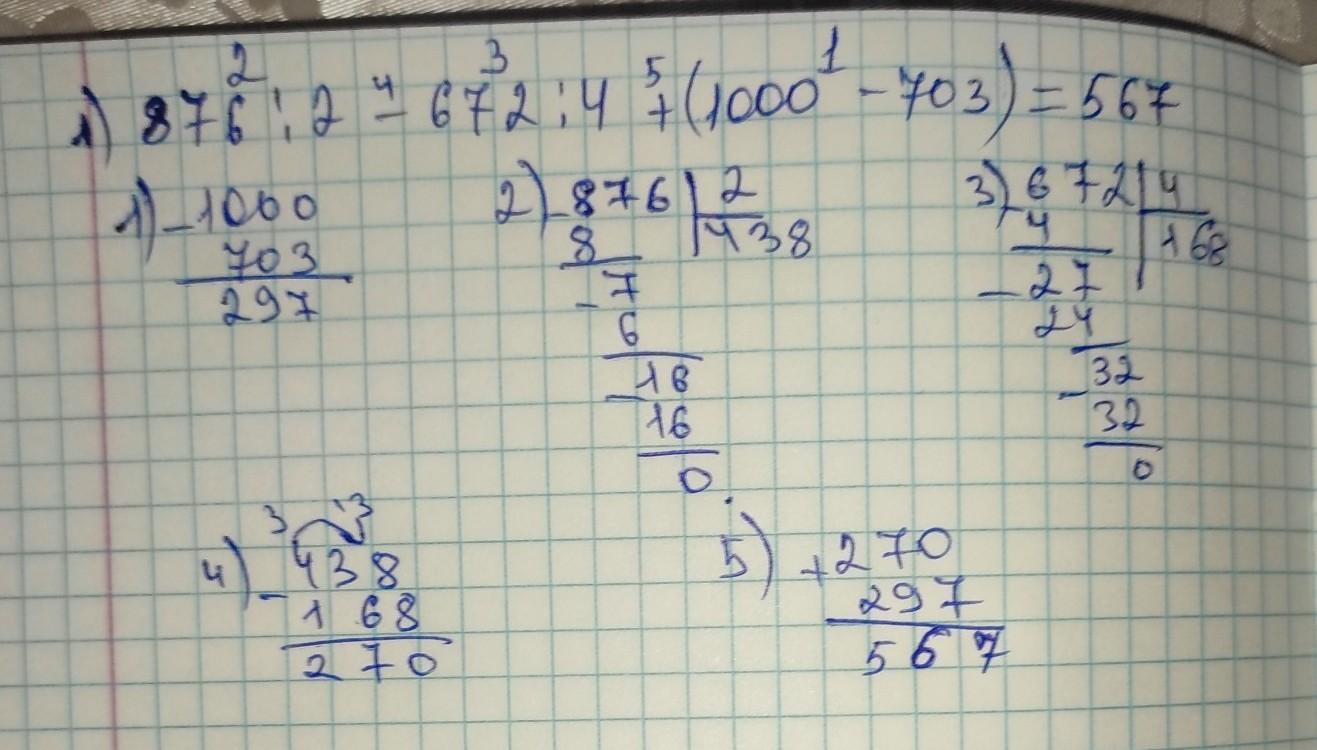 1) 876 : 2 - 672 : 4 + (1000 - 703) = 567
2 4 3 5 1
1) - 1000
703
297
2) - 876 | 2
8 | 438
- 7
6
- 16
16
0
3) - 672 | 4
4 | 168
- 27
24
- 32
32
0
3 13
4) - 438
168
270
5) + 270
297
567